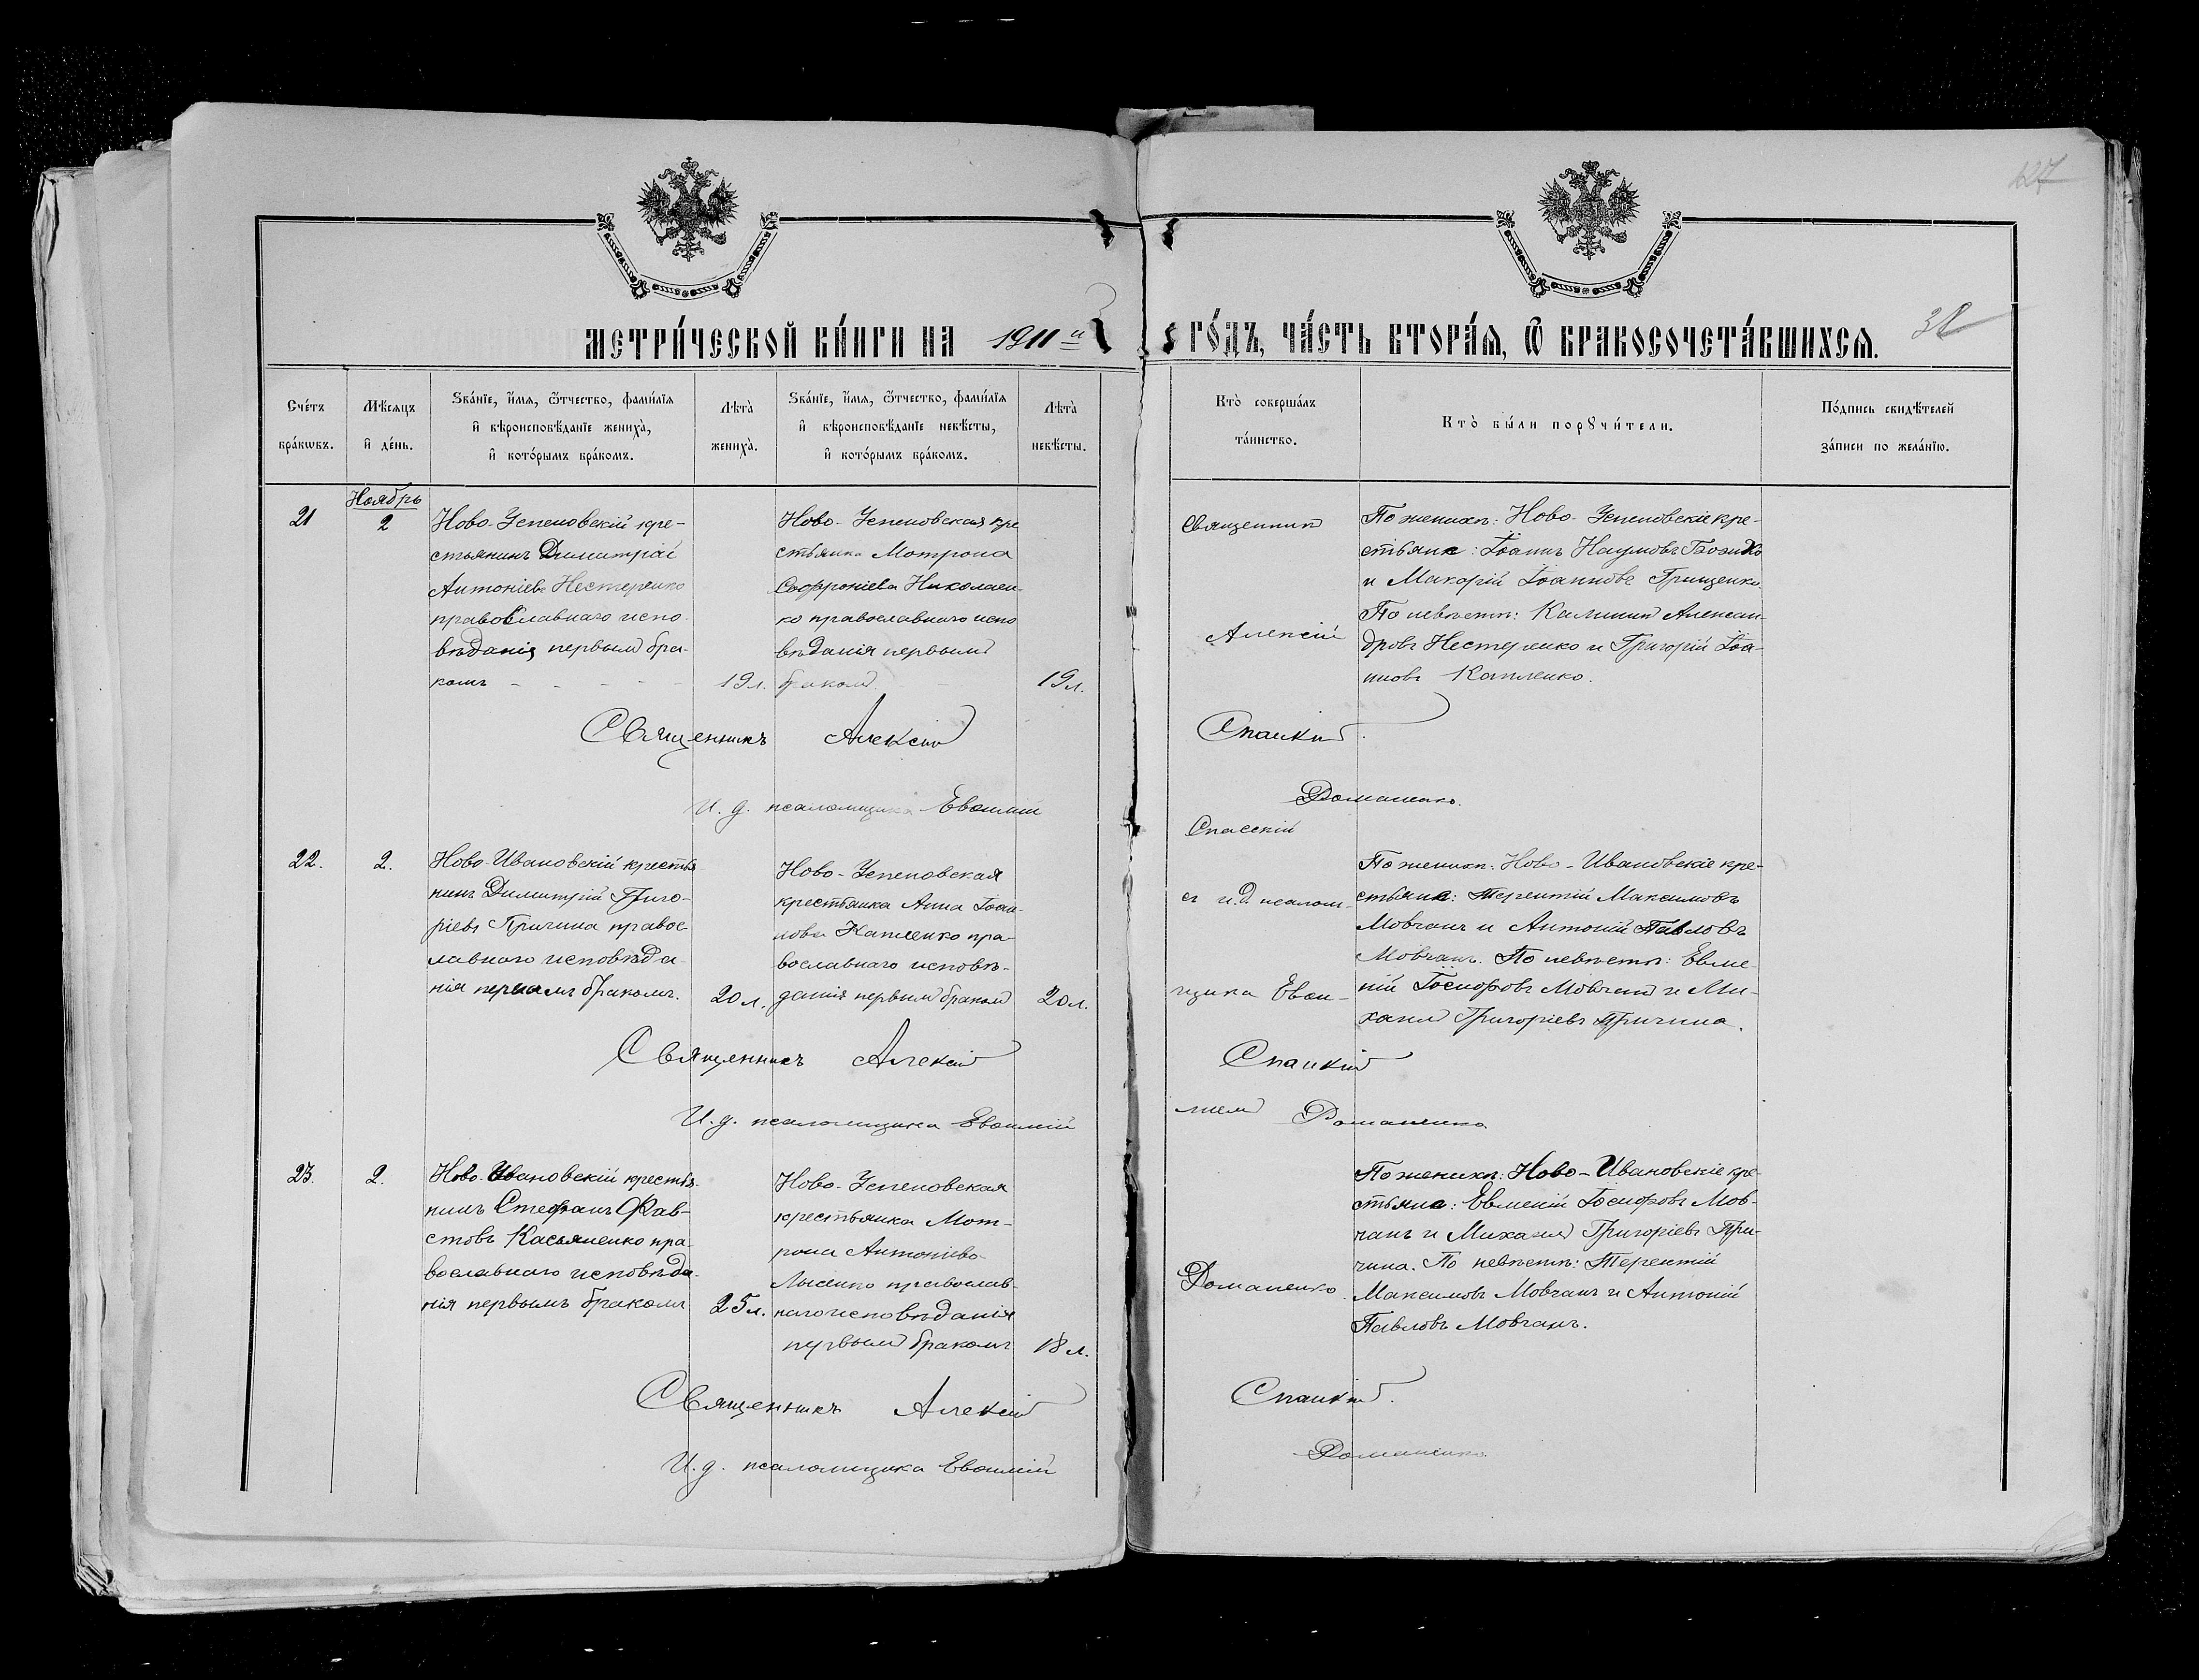 127
МЕТРИ́ЧЕСКОЙ КНИ́ГИ НА 1911й ГО́ДЪ, ЧА́СТЬ ВТОРА́Я, Ѿ БРАКОСОЧЕТА́ВШИХСЯ.
38
Сче́тъ бра́кωвъ.
Мѣ́сяцъ и҆ де́нь.
Зва́нїе, и҆́мя, ѻ҆́тчество, фами́лїя
и҆ вѣроисповѣ́данїе жениха̀,
и҆ кото́рымъ бра́комъ.
Лѣта̀ жениха̀.
Зва́нїе, и҆́мя, ѻ҆́тчество, фами́лїя
и҆ вѣроисповѣ́данїе невѣ́сты,
и҆ кото́рымъ бра́комъ.
Лѣта̀ невѣ́сты.
Кто̀ соверша́лъ
та́инство.
Кто̀ бы́ли порꙋчи́тели.
По́дпись свидѣ́телей
за́писи по жела́нїю.
21
Ноябрь
2
Ново-Успеновскій кре-
стьянинъ Димитрій
Антоніевъ Нестеренко
православнаго испо-
вѣданія первымъ бра-
комъ
19 л.
Ново-Успеновская кре
стьянка Мотрона
Софроніева Николаен-
ко православнаго испо
вѣданія первымъ
бракомъ
19 л.
Священникъ
Алексій
По женихѣ: Ново-Успеновскіе кре-
стьяне: Іоаннъ Наумовъ
и Макарій Іоанновъ Грищенко.
По невѣстѣ: Калиникъ Алексан-
дровъ Нестеренко и Григорій Іоа-
нновъ Капленко.
Священникъ Алексій Спаскій.
И. д. псаломщика Евѳимій Романенко.
Спасскій
22.
2.
Ново-Ивановскій крестья-
нинъ Димитрій Григо-
ріевъ Причина правос-
лавнаго исповѣда-
нія первымъ бракомъ.
20 л.
Ново-Успеновская
крестьянка Анна Іоан-
нова Капленко пра-
вославнаго исповѣ-
данія первымъ бракомъ
20 л.
съ и.д. псалом-
щика Евѳи-
По женихѣ: Ново-Ивановскіе кре-
стьяне: Терентій Максимовъ
Мовчанъ и Антоній Павловъ
Мовчанъ. По невѣстѣ: Евме-
ній Іосифовъ Мовчанъ и Ми-
хаилъ Григоріевъ Причина.
Священникъ Алексій Спаскій
И. д. псаломщика Евѳимій Романенко
міемъ
23.
2.
Ново-Ивановскій крестья-
нинъ Стефанъ Фав-
стовъ Касьяненко пра-
вославнаго исповѣда-
нія первымъ бракомъ
25 л.
Ново-Успеновская
крестьянка Мот-
рона Антоніева
Лысенко православ-
наго исповѣданія
первымъ бракомъ
18 л.
Романенко.
По женихѣ: Ново-Ивановскіе кре-
стьяне: Евменій Іосифовъ Мов-
чанъ и Михаилъ Григоріевъ При-
чина. По невѣстѣ: Терентій
Максимовъ Мовчанъ и Антоній
Павловъ Мовчанъ.
Священникъ Алексій Спаскій.
И. д. псаломщика Евѳимій Романенко